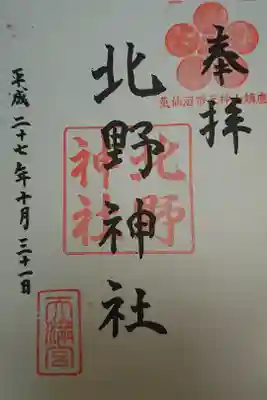 奉拝
北野神社
北野
神社
平成二十七年十月三十一日
天満宮